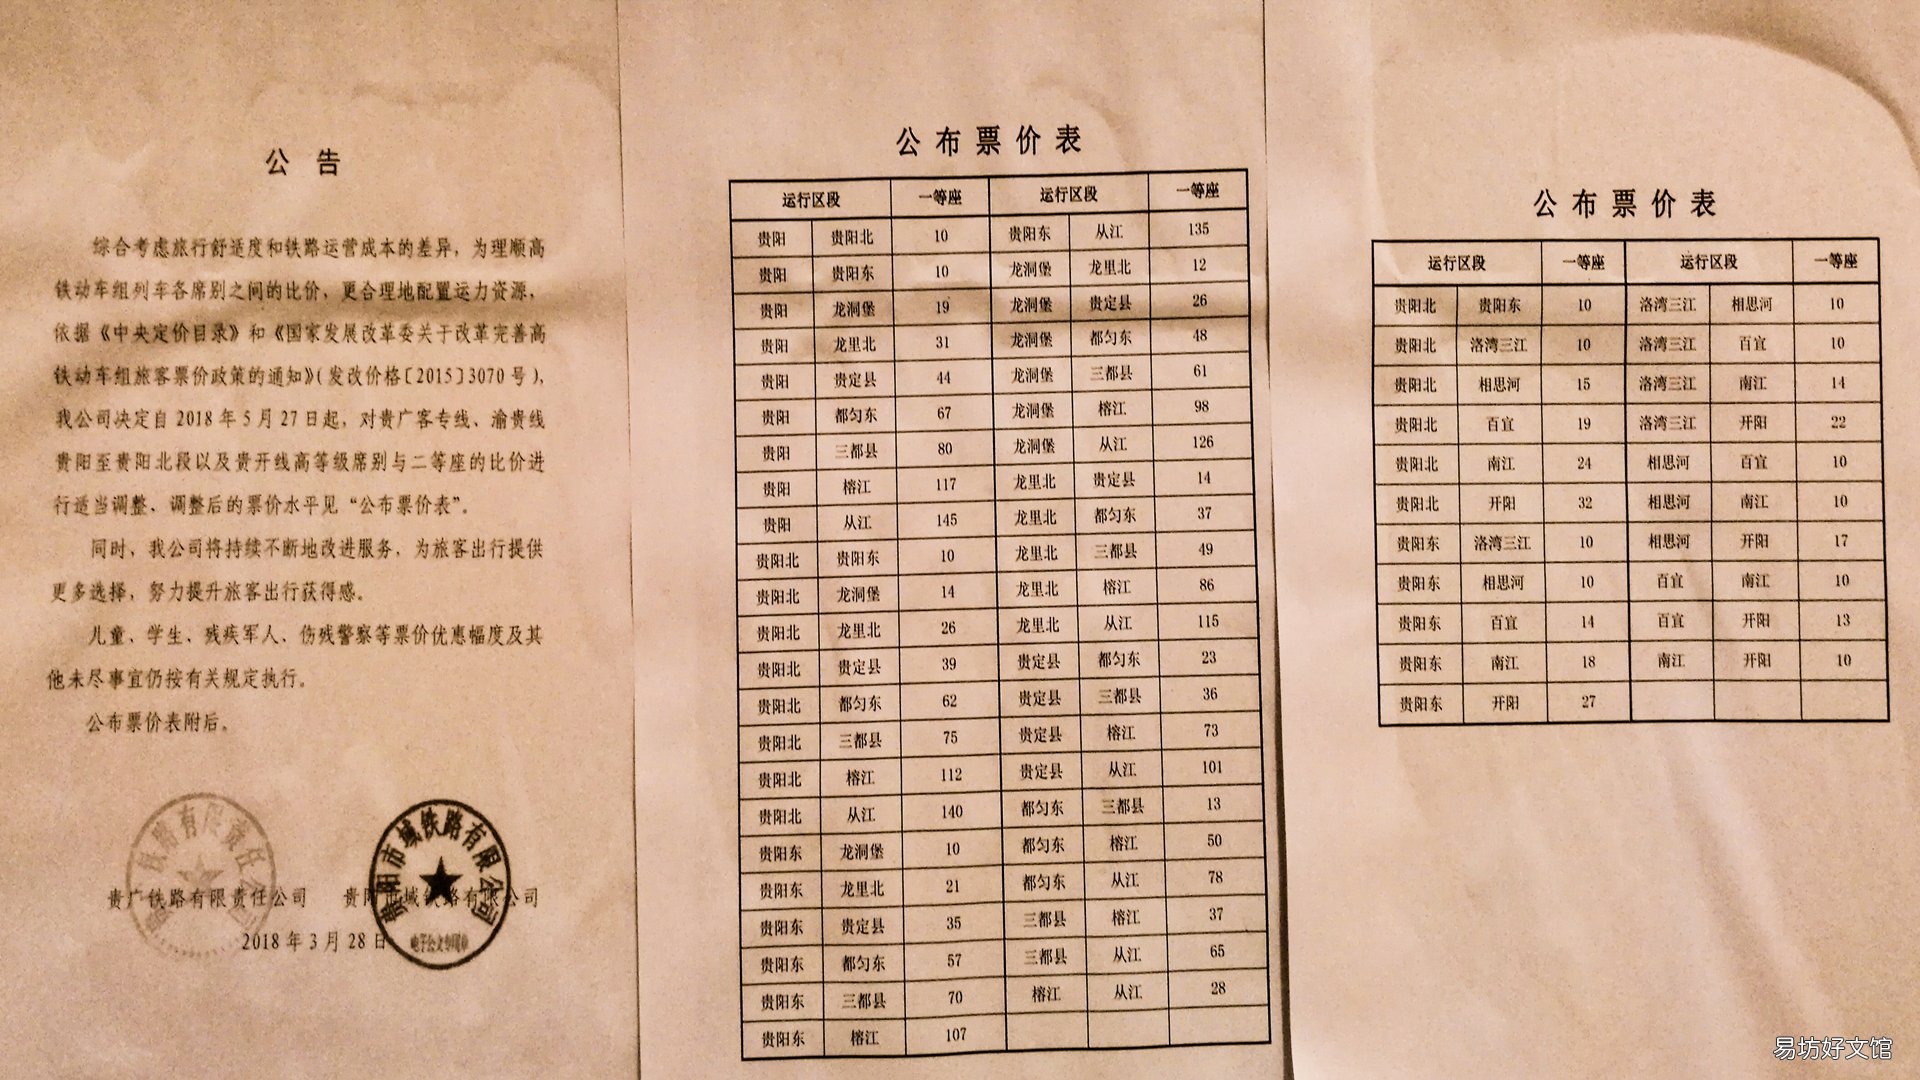 公告
综合考虑旅行舒适度和铁路运营成本的差异，为理顺高
铁动车组列车各席别之间的比价，更合理地配置运力资源，
依据《中央定价目录》和《国家发展改革委关于改革完善高
铁动车组旅客票价政策的通知》（发改价格〔2015〕3070号），
我公司决定自2018年5月27日起，对贵广客专线、渝贵线
贵阳至贵阳北段以及贵开线高等级席别与二等座的比价进
行适当调整、调整后的票价水平见“公布票价表”。
同时，我公司将持续不断地改进服务，为旅客出行提供
更多选择，努力提升旅客出行获得感。
儿童、学生、残疾军人、伤残警察等票价优惠幅度及其
他未尽事宜仍按有关规定执行。
公布票价表附后。
贵广铁路有限责任公司 贵阳市域铁路有限公司
2018年3月28日
贵阳市域铁路有限公司
电子公文专用章
公布票价表
运行区段 一等座 运行区段 一等座
贵阳 贵阳北 10 贵阳东 从江 135
贵阳 贵阳东 10 龙洞堡 龙里北 12
贵阳 龙洞堡 19 龙洞堡 贵定县 26
贵阳 龙里北 31 龙洞堡 都匀东 48
贵阳 贵定县 44 龙洞堡 三都县 61
贵阳 都匀东 67 龙洞堡 榕江 98
贵阳 三都县 80 龙洞堡 从江 126
贵阳 榕江 117 龙里北 贵定县 14
贵阳 从江 145 龙里北 都匀东 37
贵阳北 贵阳东 10 龙里北 三都县 49
贵阳北 龙洞堡 14 龙里北 榕江 86
贵阳北 龙里北 26 龙里北 从江 115
贵阳北 贵定县 39 贵定县 都匀东 23
贵阳北 都匀东 62 贵定县 三都县 36
贵阳北 三都县 75 贵定县 榕江 73
贵阳北 榕江 112 贵定县 从江 101
贵阳北 从江 140 都匀东 三都县 13
贵阳东 龙洞堡 10 都匀东 榕江 50
贵阳东 龙里北 21 都匀东 从江 78
贵阳东 贵定县 35 三都县 榕江 37
贵阳东 都匀东 57 三都县 从江 65
贵阳东 三都县 70 榕江 从江 28
贵阳东 榕江 107
公布票价表
运行区段 一等座 运行区段 一等座
贵阳北 贵阳东 10 洛湾三江 相思河 10
贵阳北 洛湾三江 10 洛湾三江 百宜 10
贵阳北 相思河 15 洛湾三江 南江 14
贵阳北 百宜 19 洛湾三江 开阳 22
贵阳北 南江 24 相思河 百宜 10
贵阳北 开阳 32 相思河 南江 10
贵阳东 洛湾三江 10 相思河 开阳 17
贵阳东 相思河 10 百宜 南江 10
贵阳东 百宜 14 百宜 开阳 13
贵阳东 南江 18 南江 开阳 10
贵阳东 开阳 27
易坊好文馆